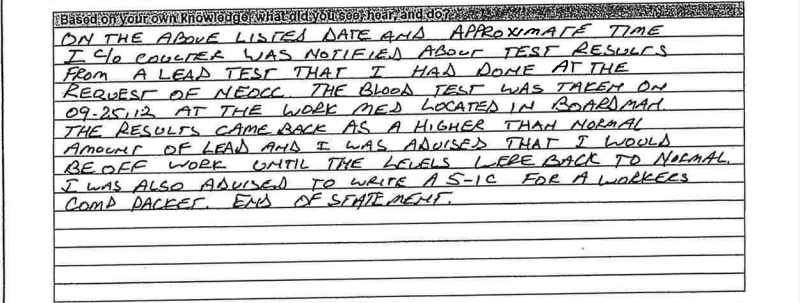 Based on your own knowledge, what did you see, hear, and do?
ON THE ABOVE LISTED DATE AND APPROXIMATE TIME
I C/O COULTER WAS NOTIFIED ABOUT TEST RESULTS
FROM A LEAD TEST THAT I HAD DONE AT THE
REQUEST OF NEOCC. THE BLOOD TEST WAS TAKEN ON
09-25-12 AT THE WORK MED LOCATED IN BOARDMAN.
THE RESULTS CAME BACK AS A HIGHER THAN NORMAL
AMOUNT OF LEAD AND I WAS ADVISED THAT I WOULD
BE OFF WORK UNTIL THE LEVELS WERE BACK TO NORMAL.
I WAS ALSO ADVISED TO WRITE A 5-1C FOR A WORKERS
COMP PACKET. END OF STATEMENT.